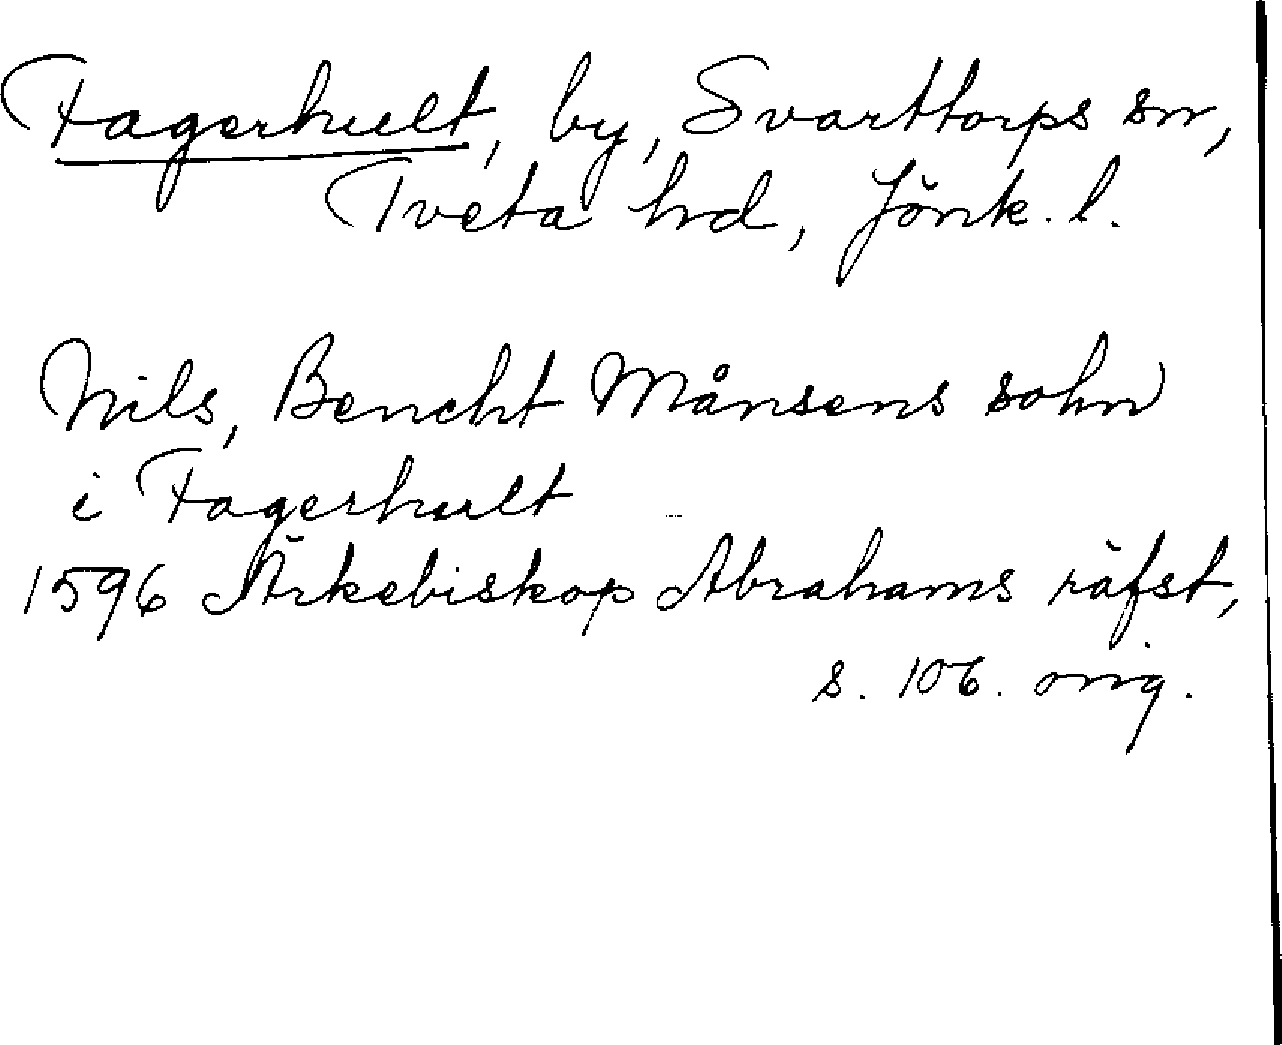 Fagerhult, by, Svarttorps sn,
Tveta hd, Jönk. l.
Nils, Bencht Månsens sohn
i Fagerhult
1596 Ärkebiskop Abrahams räfst,
s. 106. orig.